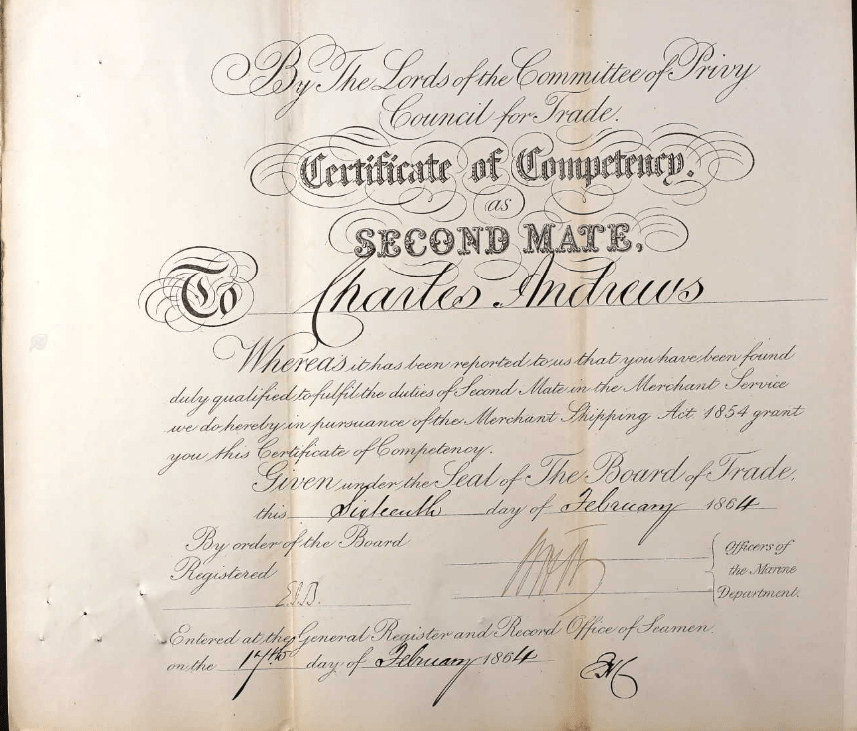 By The Lords of the Committee of Privy
Council for Trade.
Certificate of Competency.
as
SECOND MATE,
To Charles Andrews
Whereas it has been reported to us that you have been found
duly qualified to fulfil the duties of Second Mate in the Merchant Service
we do hereby in pursuance of the Merchant Shipping Act 1854 grant
you this Certificate of Competency.
Given under the Seal of The Board of Trade,
this Sixteenth day of February 1864
By order of the Board
Registered
Officers of
the Marine
Department.
Entered at the General Register and Record Office of Seamen
on the 17th day of February 1864